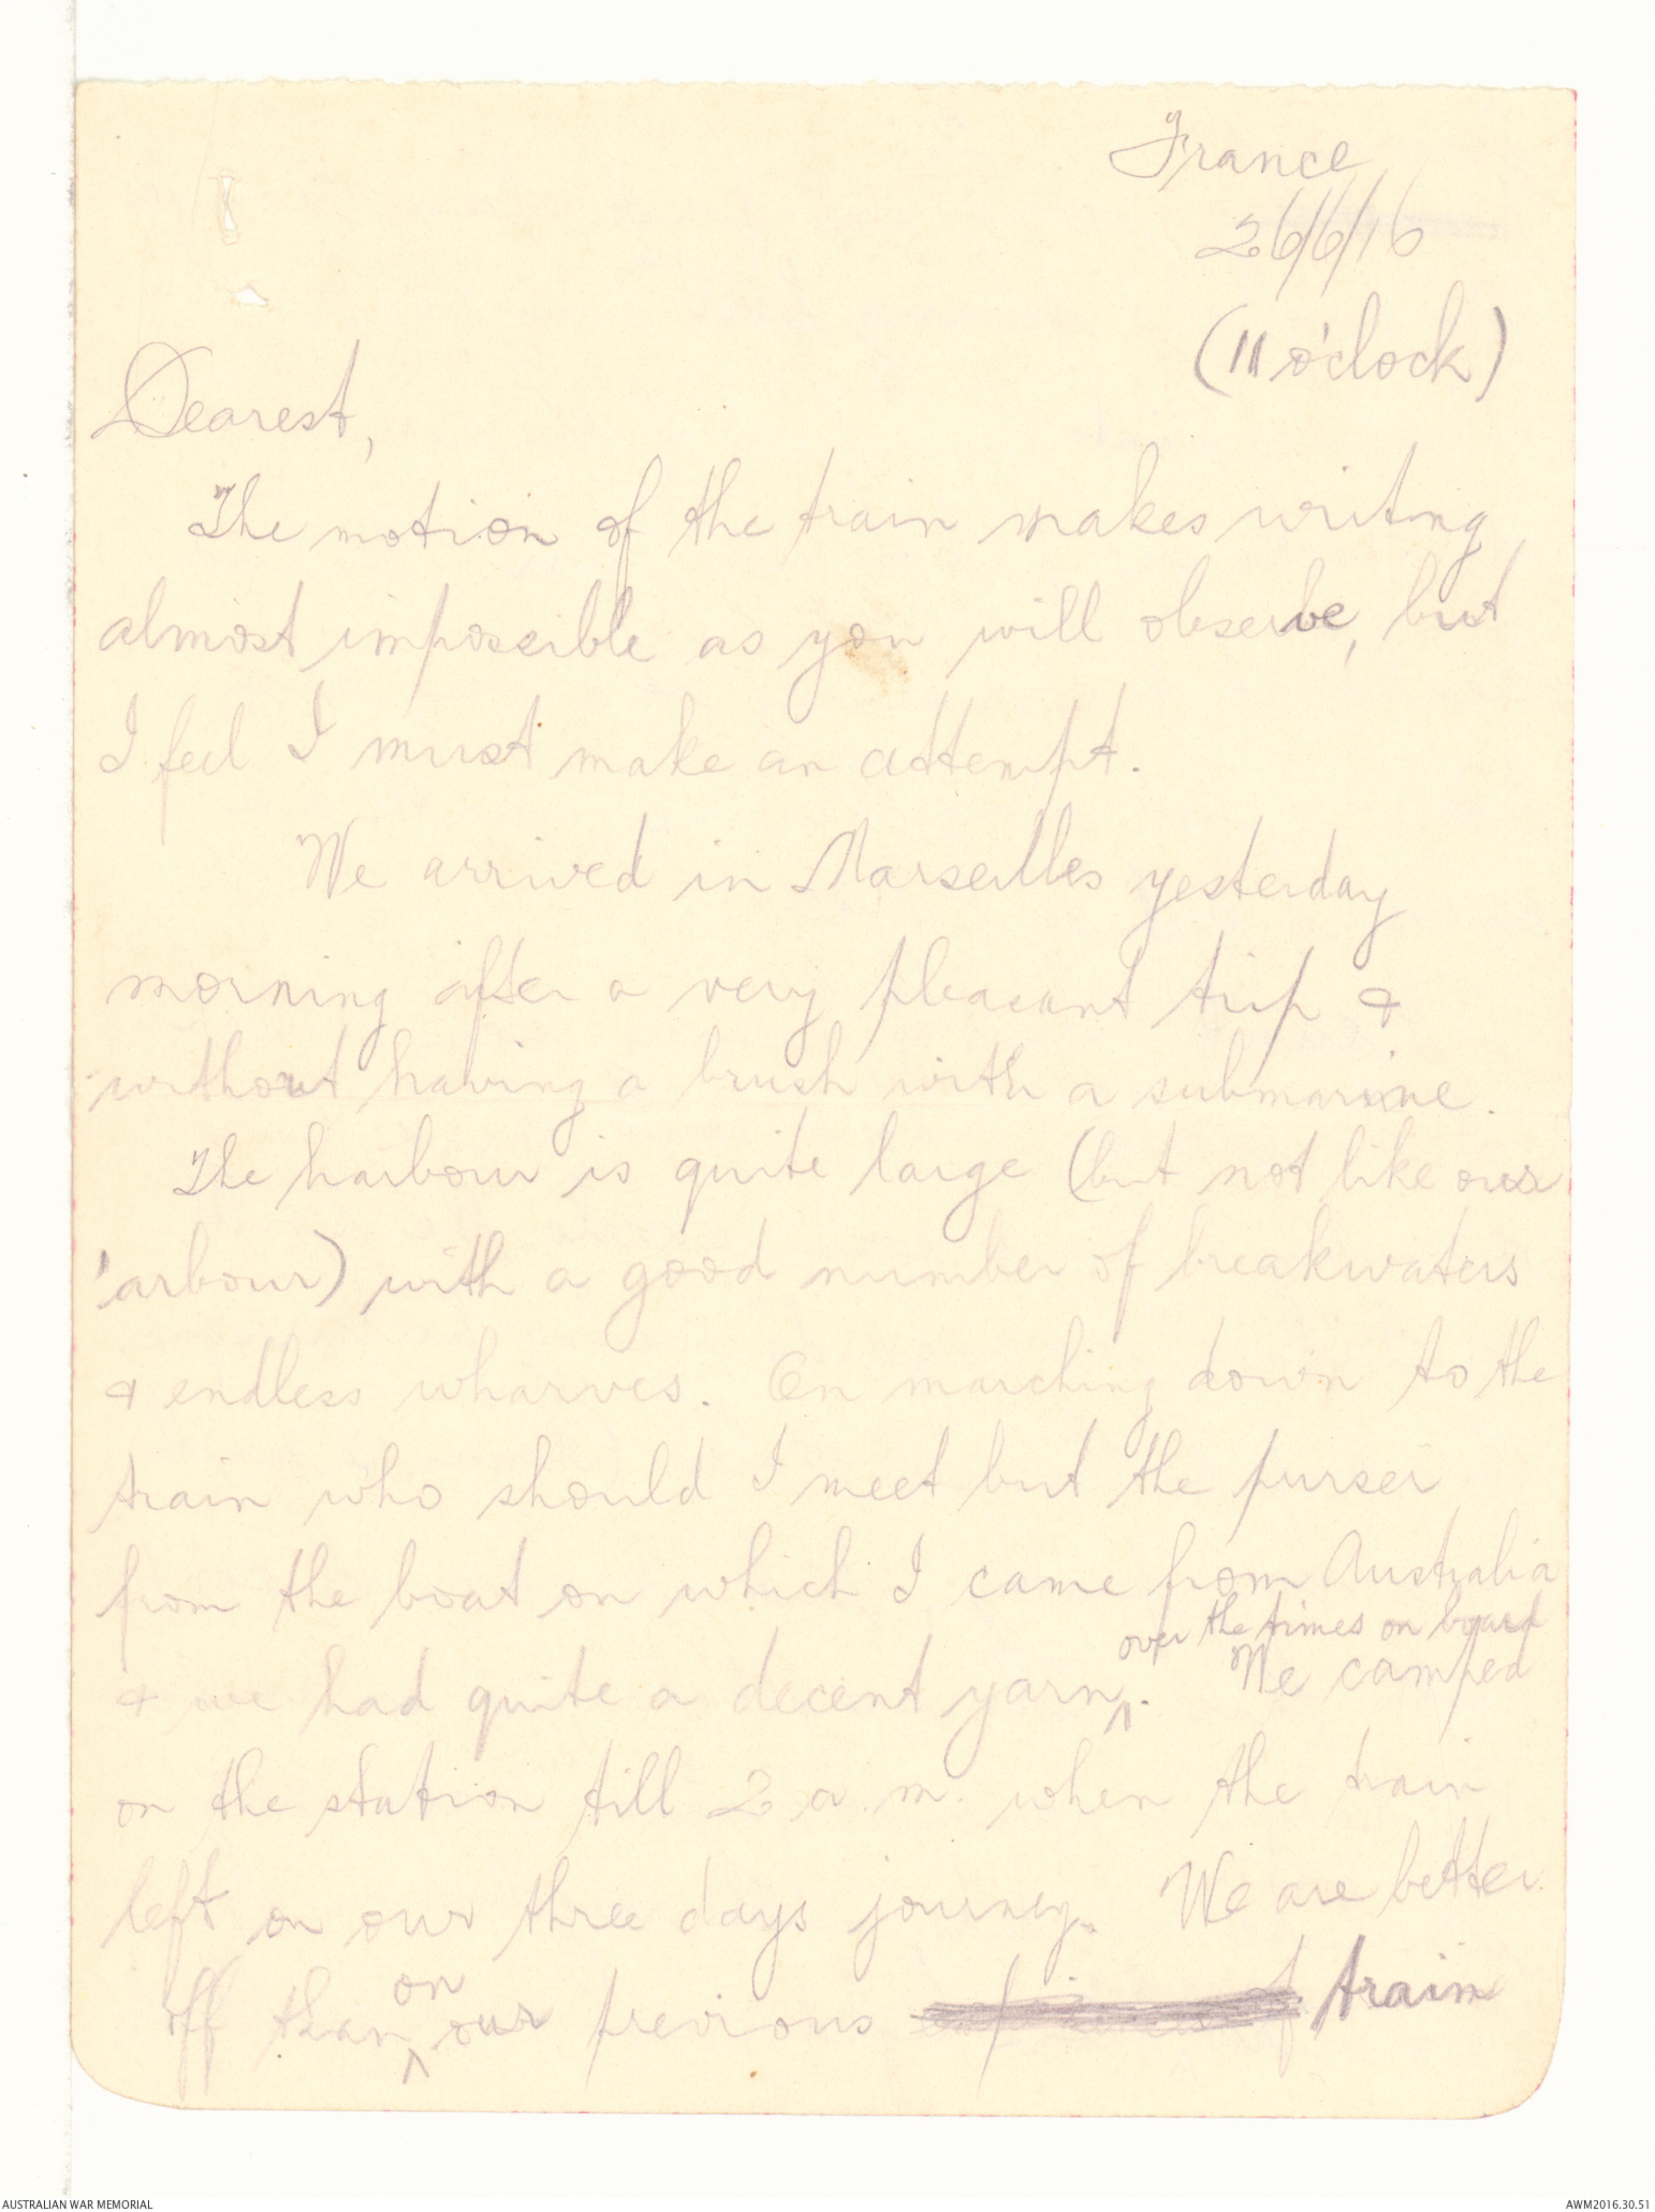 France
26/6/16
(11 o'clock)
Dearest,
The motion of the train makes writing
almost impossible as you will observe, but
I feel I must make an attempt.
We arrived in Marseilles yesterday
morning after a very pleasant trip &
without having a brush with a submarine.
The harbour is quite large (but not like our
'arbour) with a good number of breakwaters
& endless wharves. On marching down to the
train who should I meet but the purser
from the boat on which I came from Australia
over the times on board
& we had quite a decent yarn. We camped
on the station till 2 a.m. when the train
left on our three days journey. We are better
on
off than our previous train
AUSTRALIAN WAR MEMORIAL
AWM2016.30.51